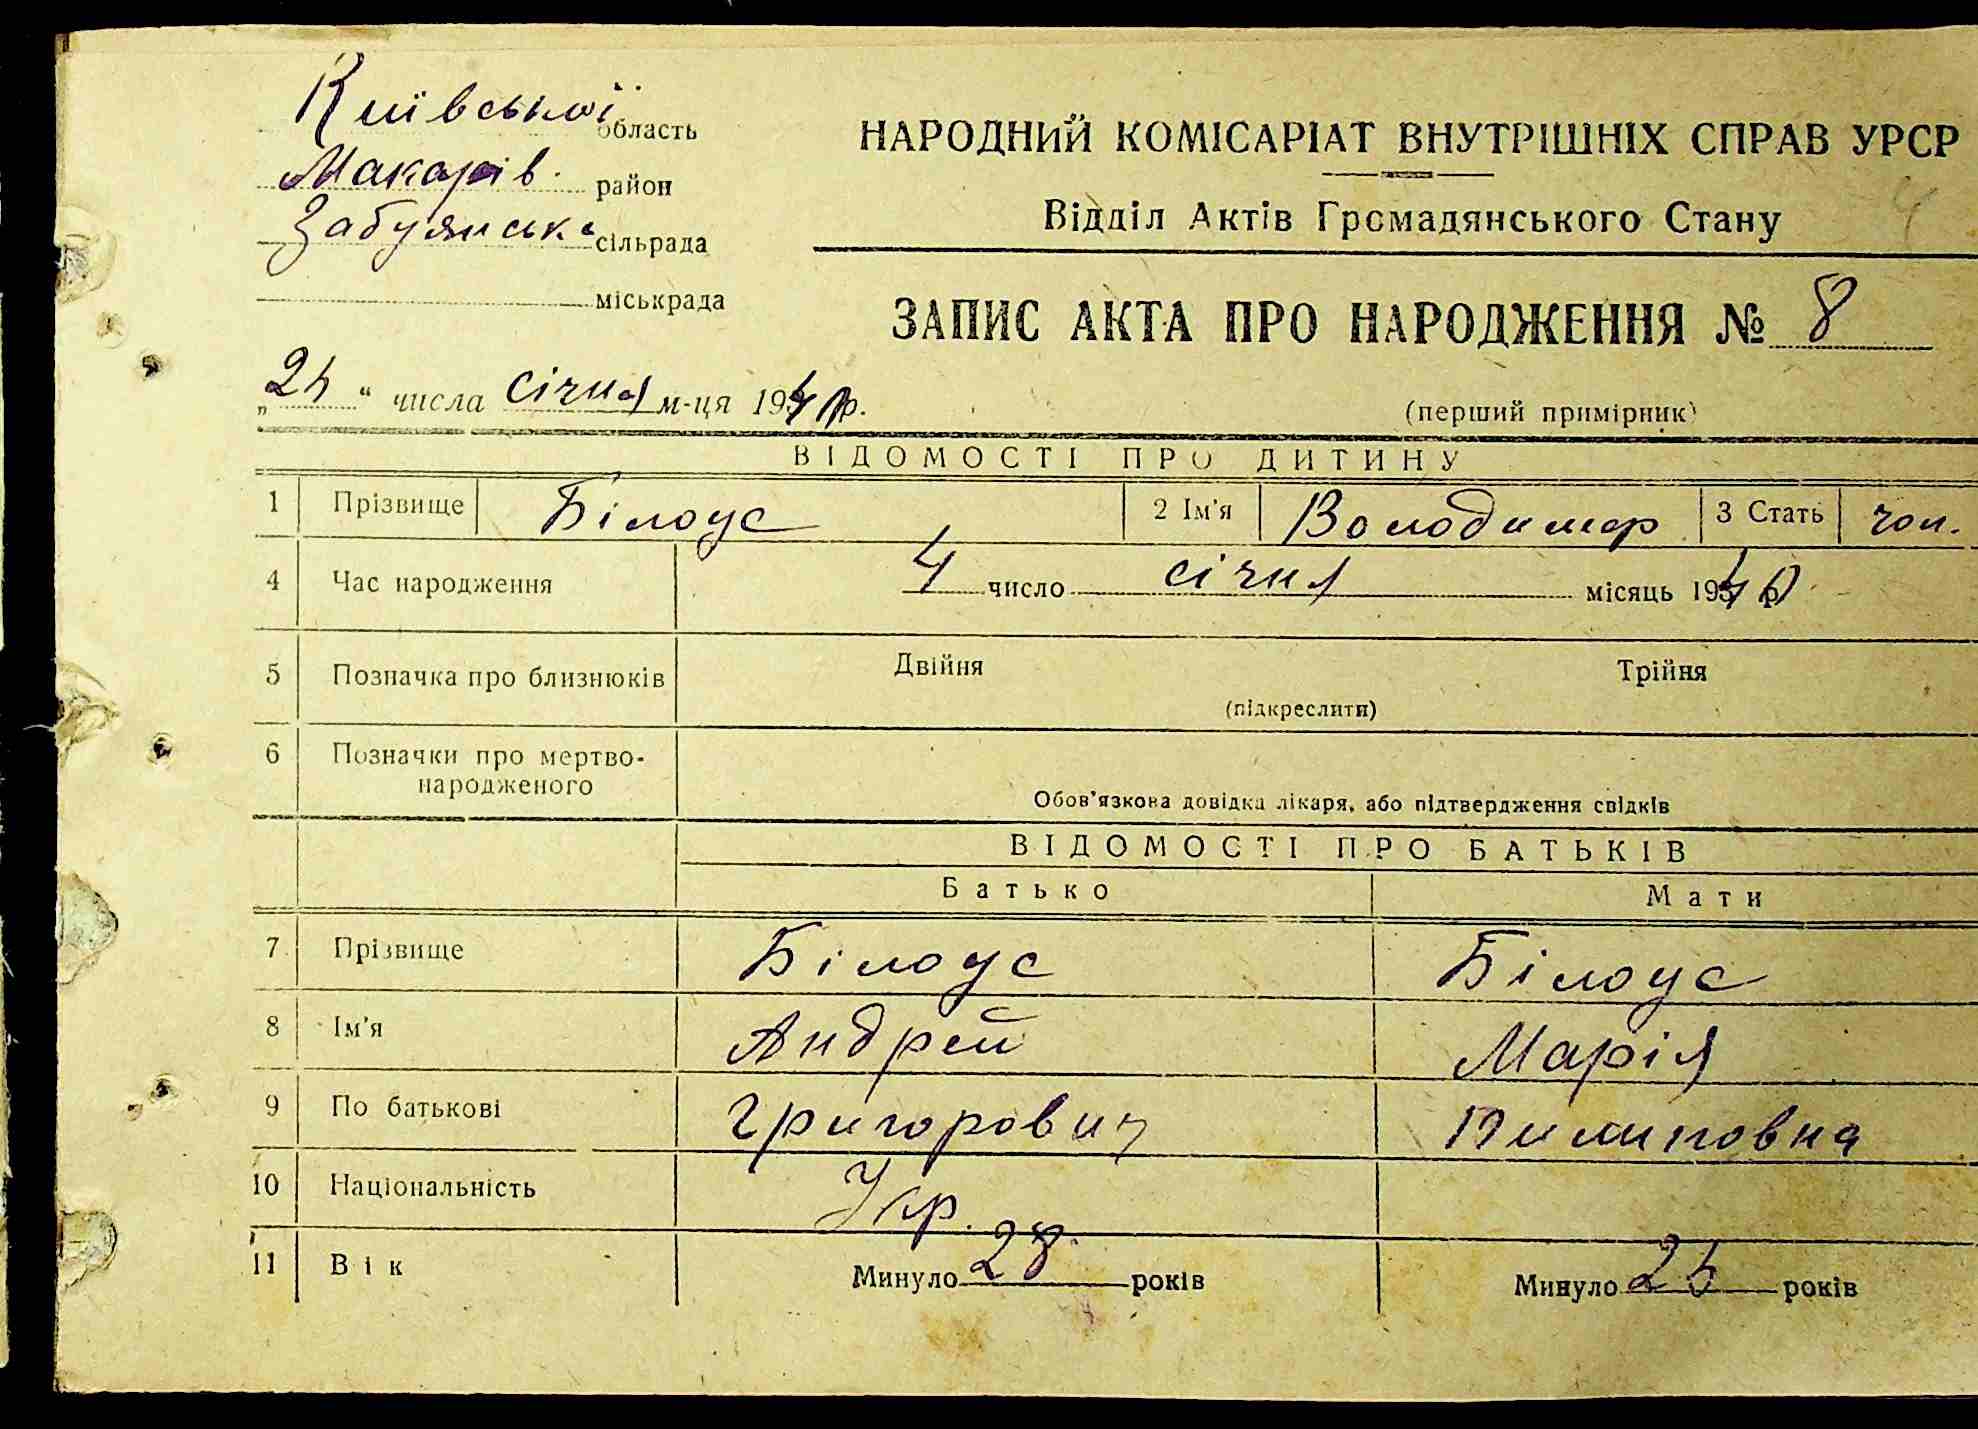 Київської область
НАРОДНИЙ КОМІСАРІАТ ВНУТРІШНІХ СПРАВ УРСР
Макарів. район
Відділ Актів Громадянського Стану
4
Забуянська сільрада
міськрада
ЗАПИС АКТА ПРО НАРОДЖЕННЯ № 8
„25“ числа січня м-ця 194 р.
(перший примірник)
ВІДОМОСТІ ПРО ДИТИНУ
1 Прізвище Білоус 2 Ім'я Володимер 3 Стать чол.
4 Час народження 4 число січня місяць 1940
5 Позначка про близнюків Двійня Трійня
(підкреслити)
6 Позначки про мертво-
народженого
Обов'язкова довідка лікаря, або підтвердження свідків
ВІДОМОСТІ ПРО БАТЬКІВ
Батько Мати
7 Прізвище Білоус Білоус
8 Ім'я Андрей Марія
9 По батькові Григорович Пилиповна
10 Національність Укр.
11 Вік Минуло 28 років Минуло 25 років